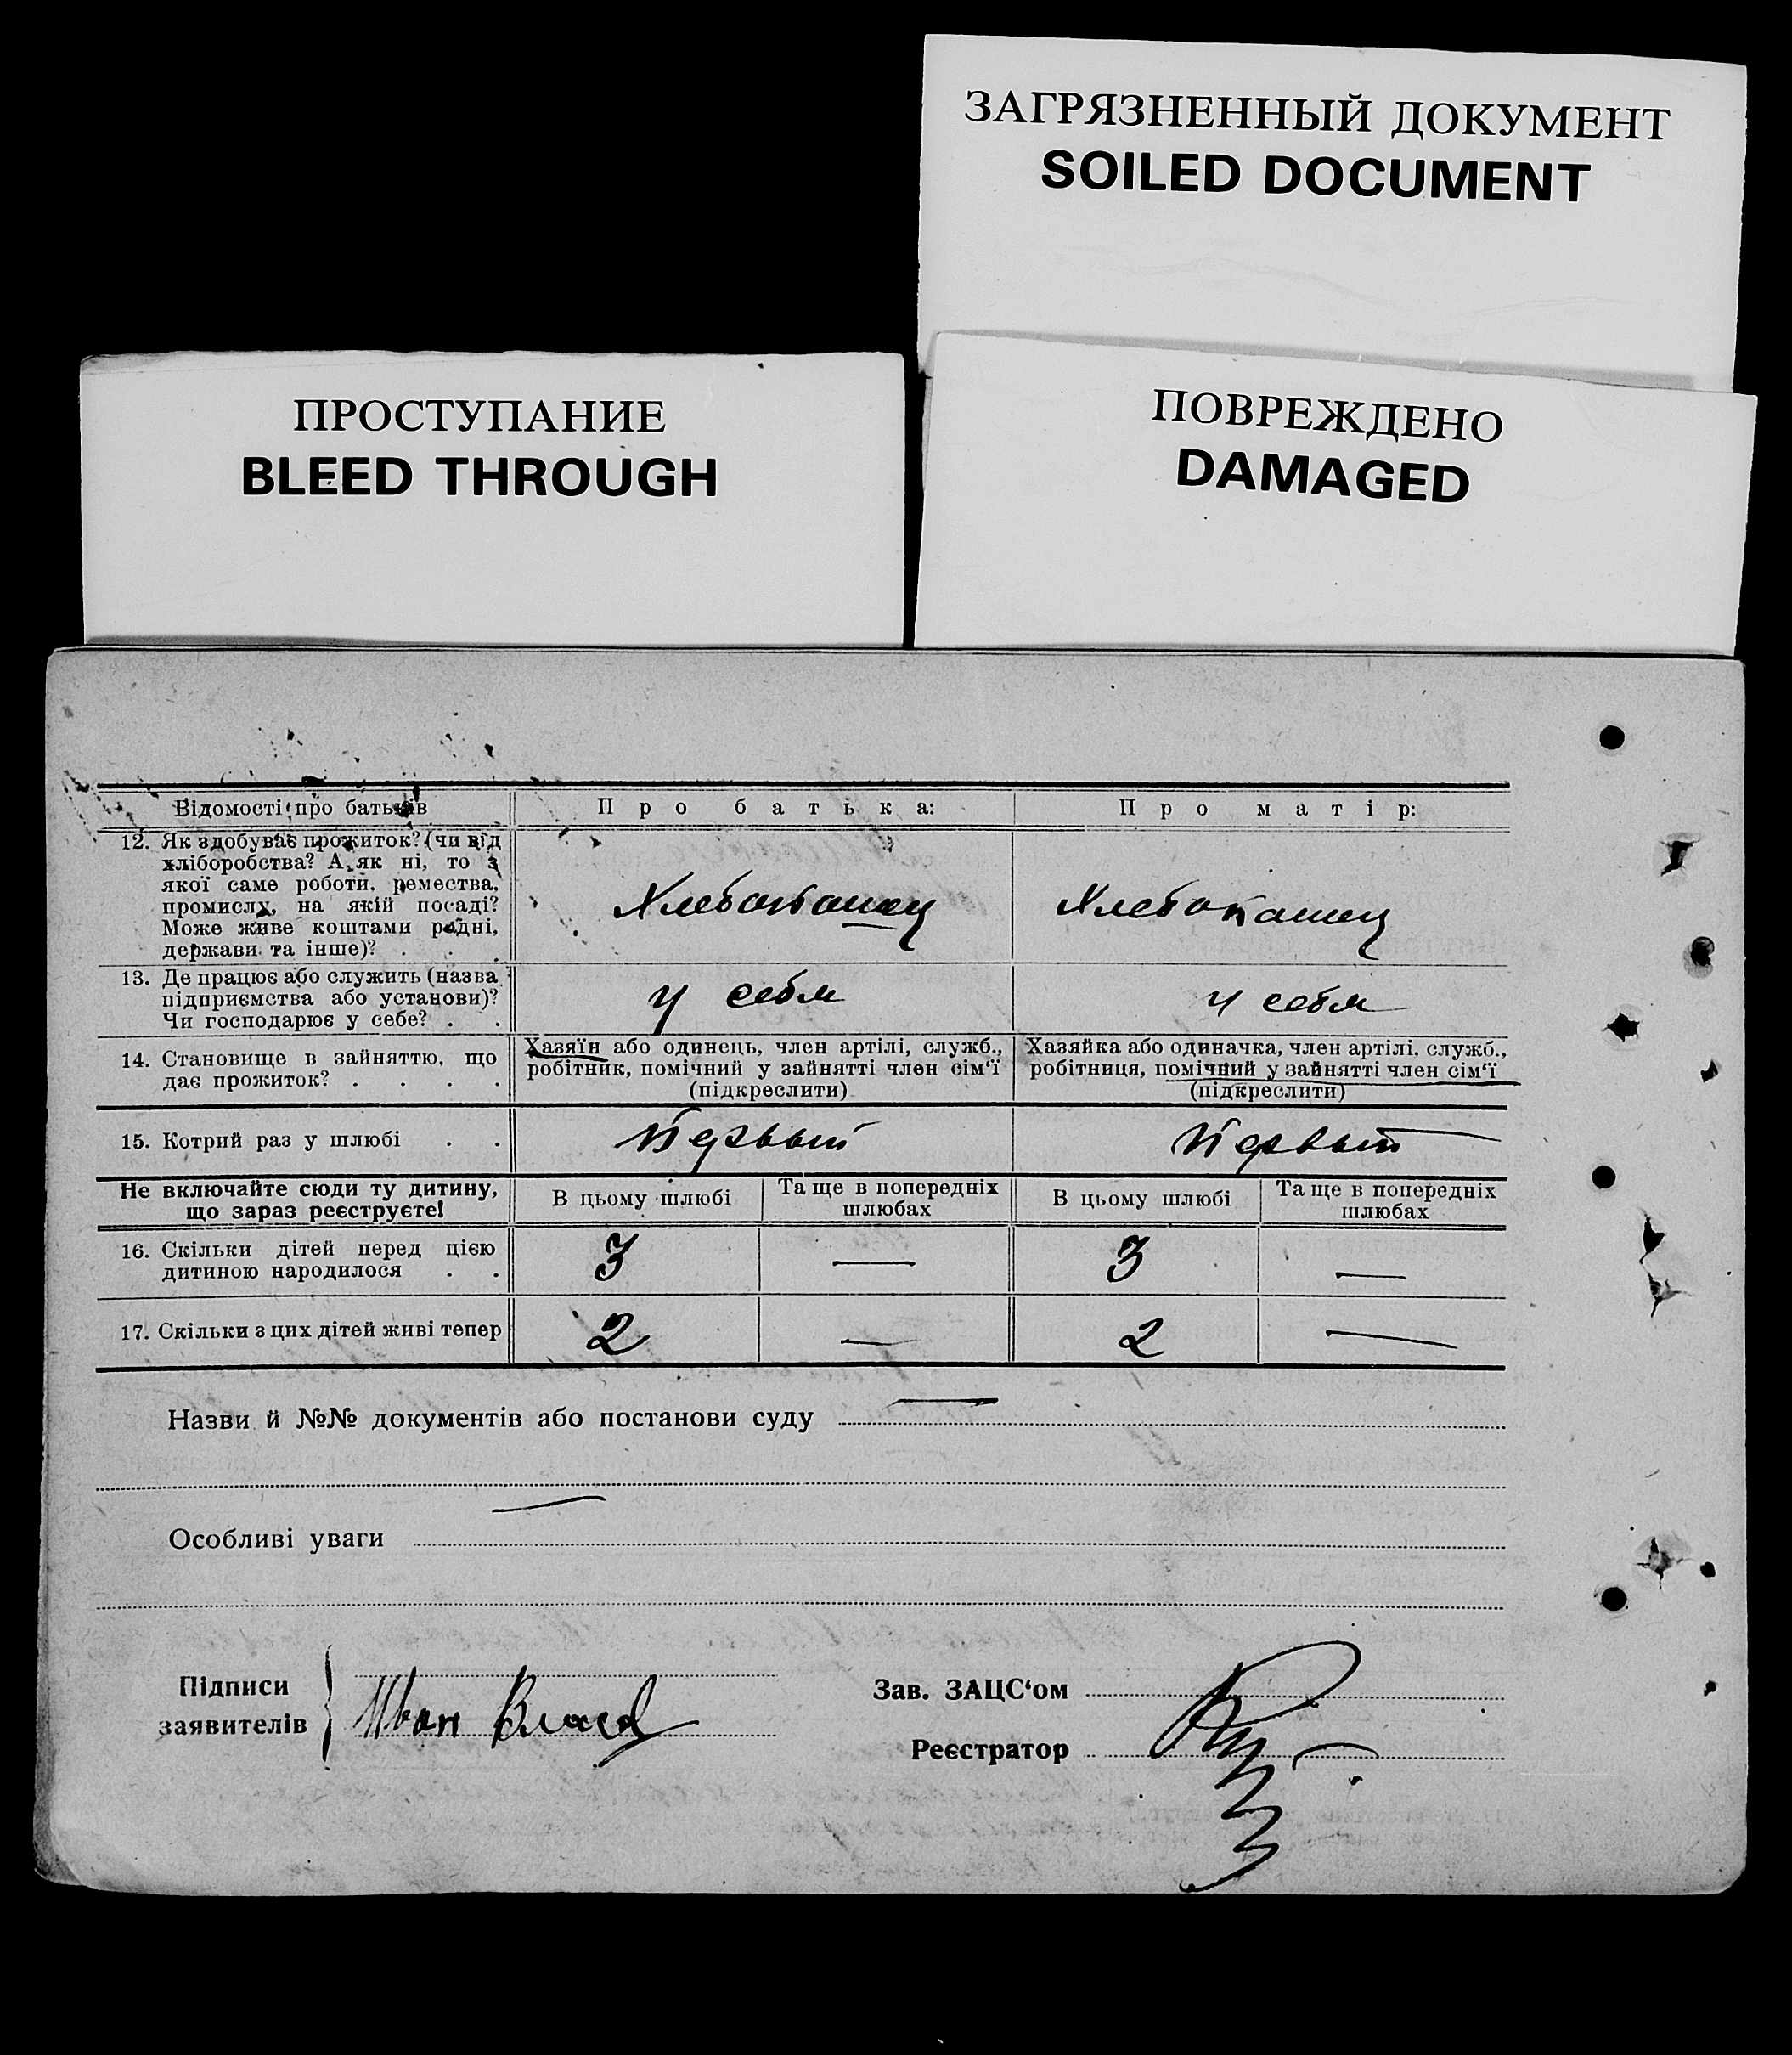 ЗАГРЯЗНЕННЫЙ ДОКУМЕНТ
SOILED DOCUMENT
ПРОСТУПАНИЕ
BLEED THROUGH
ПОВРЕЖДЕНО
DAMAGED
Відомості про батьків
Про батька:
Про матір:
12. Як здобуває прожиток? (чи від
хліборобства? А як ні, то з
якої саме роботи, ремества,
промислу, на якій посаді?
Може живе коштами рідні,
держави та інше)? . . .
Хлебопашец
Хлебопашец
13. Де працює або служить (назва
підприємства або установи)?
Чи господарює у себе? . .
у себя
у себя
14. Становище в зайняттю, що
дає прожиток? . . . .
Хазяїн або одинець, член артілі, служб.,
робітник, помічний у зайнятті член сім'ї
(підкреслити)
Хазяйка або одиначка, член артілі, служб.,
робітниця, помічний у зайнятті член сім'ї
(підкреслити)
15. Котрий раз у шлюбі . .
Первый
Первый
Не включайте сюди ту дитину,
що зараз реєструєте!
В цьому шлюбі
Та ще в попередніх
шлюбах
В цьому шлюбі
Та ще в попередніх
шлюбах
16. Скільки дітей перед цією
дитиною народилося . .
3 — 3 —
17. Скільки з цих дітей живі тепер
2 — 2 —
Назви й №№ документів або постанови суду —
Особливі уваги —
Підписи
заявителів
Иван
Зав. ЗАЦС'ом
Реєстратор